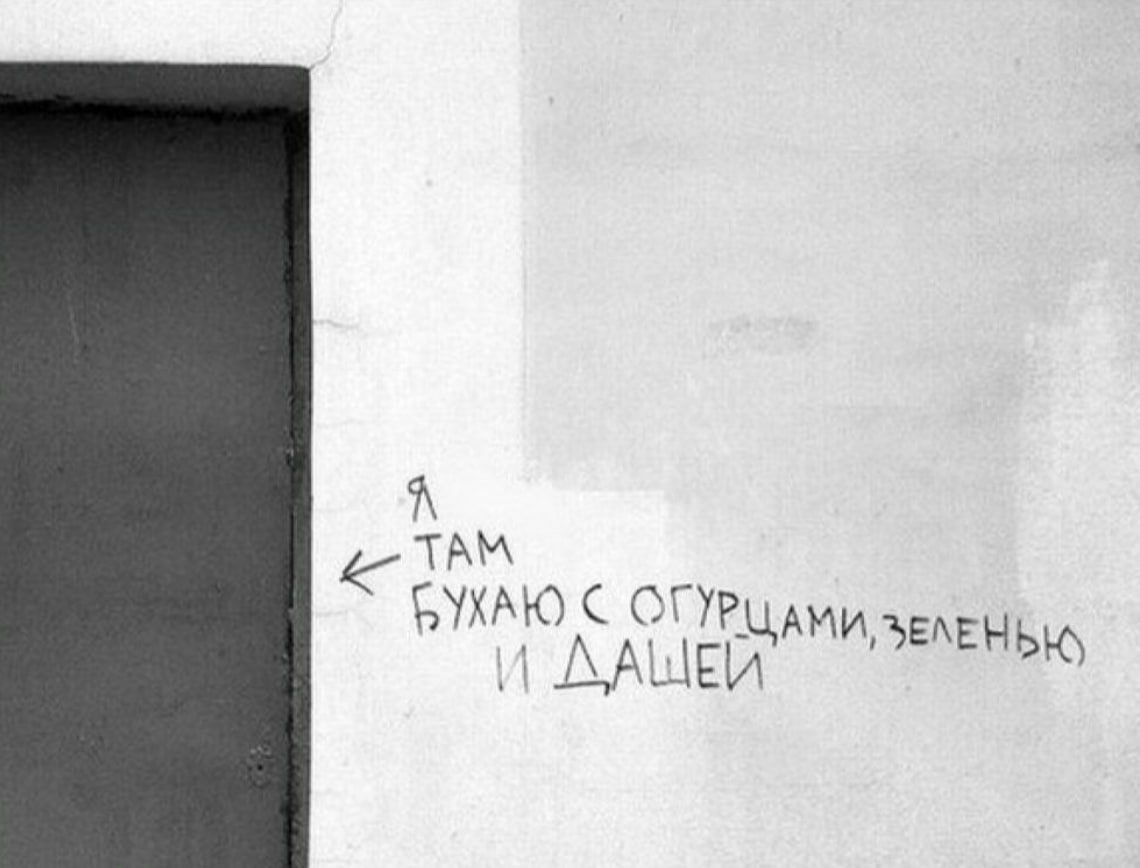 Я
ТАМ
БУХАЮ С ОГУРЦАМИ, ЗЕЛЕНЬЮ
И ДАШЕЙ